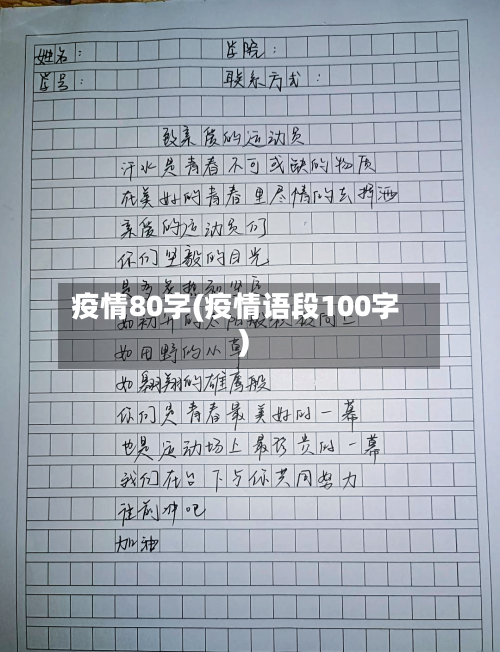 姓名： 学院：
学号： 联系方式：
致亲爱的运动员
汗水是青春不可或缺的物质
在美好的青春里尽情的去挥洒
亲爱的运动员们
你们坚毅的目光
疫情80字(疫情语段100字
)
如田野的小草
如翱翔的雄鹰般
你们是青春最美好的一幕
也是运动场上最珍贵的一幕
我们在台下与你共同努力
往前冲吧
加油